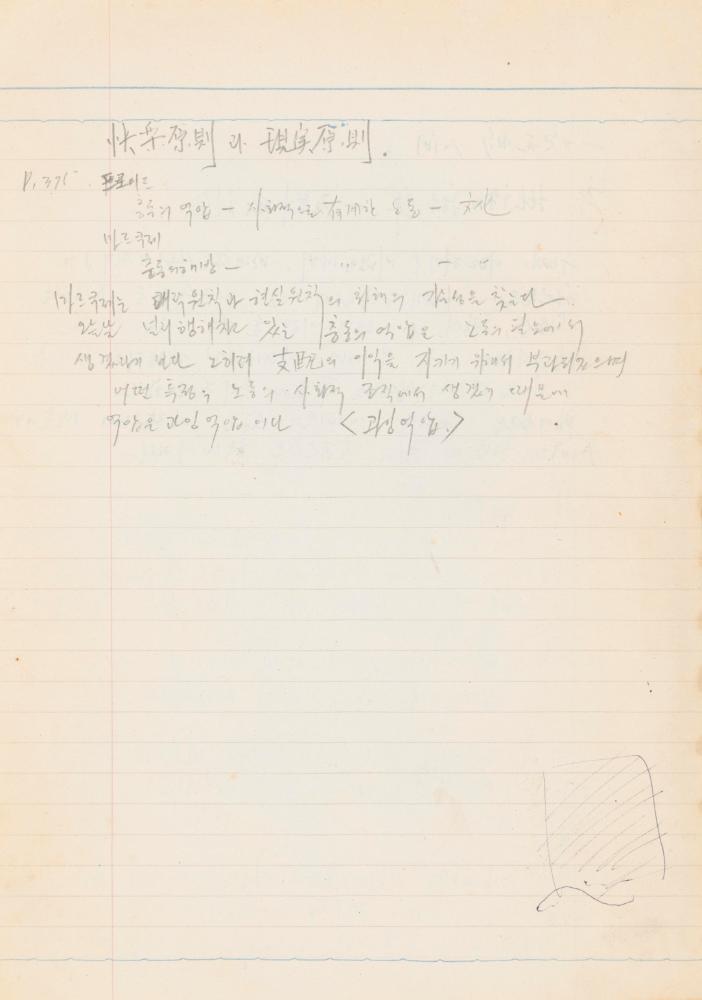 快楽原則과 現実原則.
P. 375. 프로이드
충동의 역압 - 사회적으로 有用한 노동 - 文化
마르쿠제
충동의 해방 - 〃 - 〃
마르쿠제는 쾌락원칙과 현실원칙의 화해의 가능성을 찾는다.
오늘날 널리 행해지고 있는 충동의 억압은 노동의 필요에서
생겼다기 보다 노히려 支配의 이익을 지키기 위해서 부과되었으며
어떤 특정의 노동의 사회적 조직에서 생겼기 때문에
억압은 과잉억압이다 <과잉억압.>